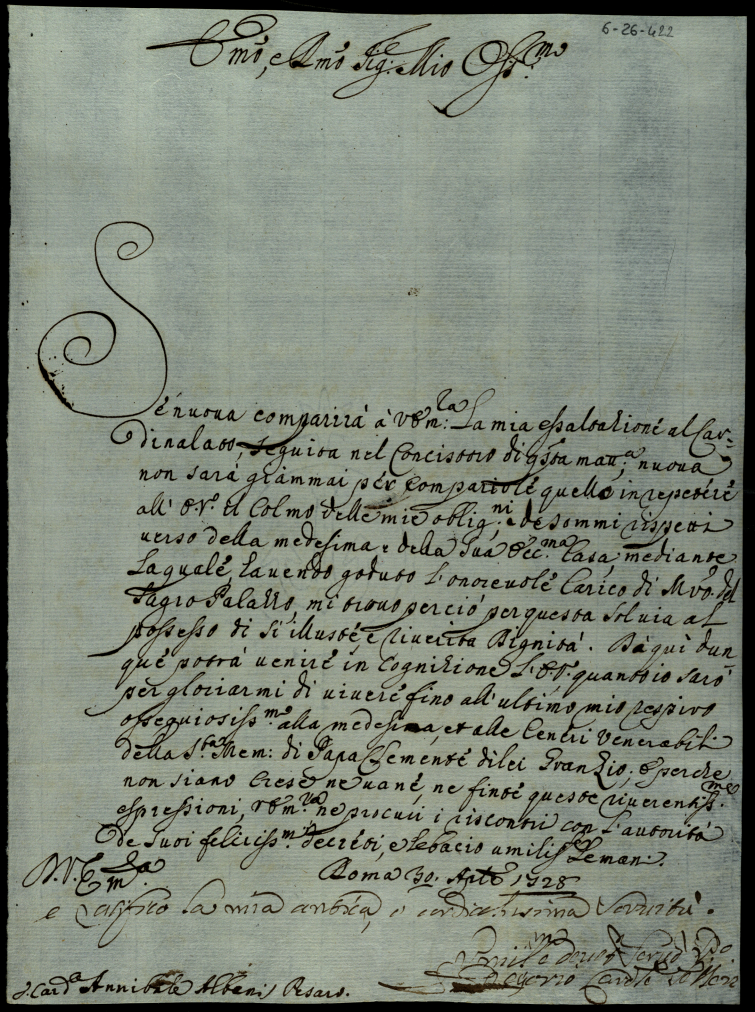 6-26-422
Emo, e Rmo Sig:re Mio Oss:mo
Se nuova comparirà à VEm:za La mia essaltazione al Car=
dinalato, seguita nel Concistoro di qsta matt:a; nuova
non sarà giammai per comparirle quella in repetere
all' EV. il Colmo delle mie oblig:ni e de sommi rispetti
verso della medesima e della Sua Ecc:ma Casa, mediante
Laquale, havendo goduto L'onorevole Carico di Mro. del
Sagro Palazzo, mi trovo perciò per questa salvia al
possesso di sì illustre e riverita Dignità. Dà quì dun=
que potrà venire in Cognizione L'EV. quant'io sarò
per gloriarmi di vivere fino all'ultimo mio respiro
ossequiosiss:mo alla medesima, et alle Ceneri Venerabili
della S:ta Mem: di Papa Clemente di lei Gran Zio; E perche
non siano Crese ne vane, ne finte queste riverentiss:me
espressioni, VEm:za ne procuri i riscontri con l'autorità
de suoi feliciss:mi decreti, e Le bacio umiliss:te Le mani.
D.V. Em:za
Roma 30. Aple 1728
e ratifico la mia antica, e cordialissima servitù.
S. Card:le Annibale Albani, Pesaro.
Umil:mo devot:mo Serv:
Gregorio Card:le